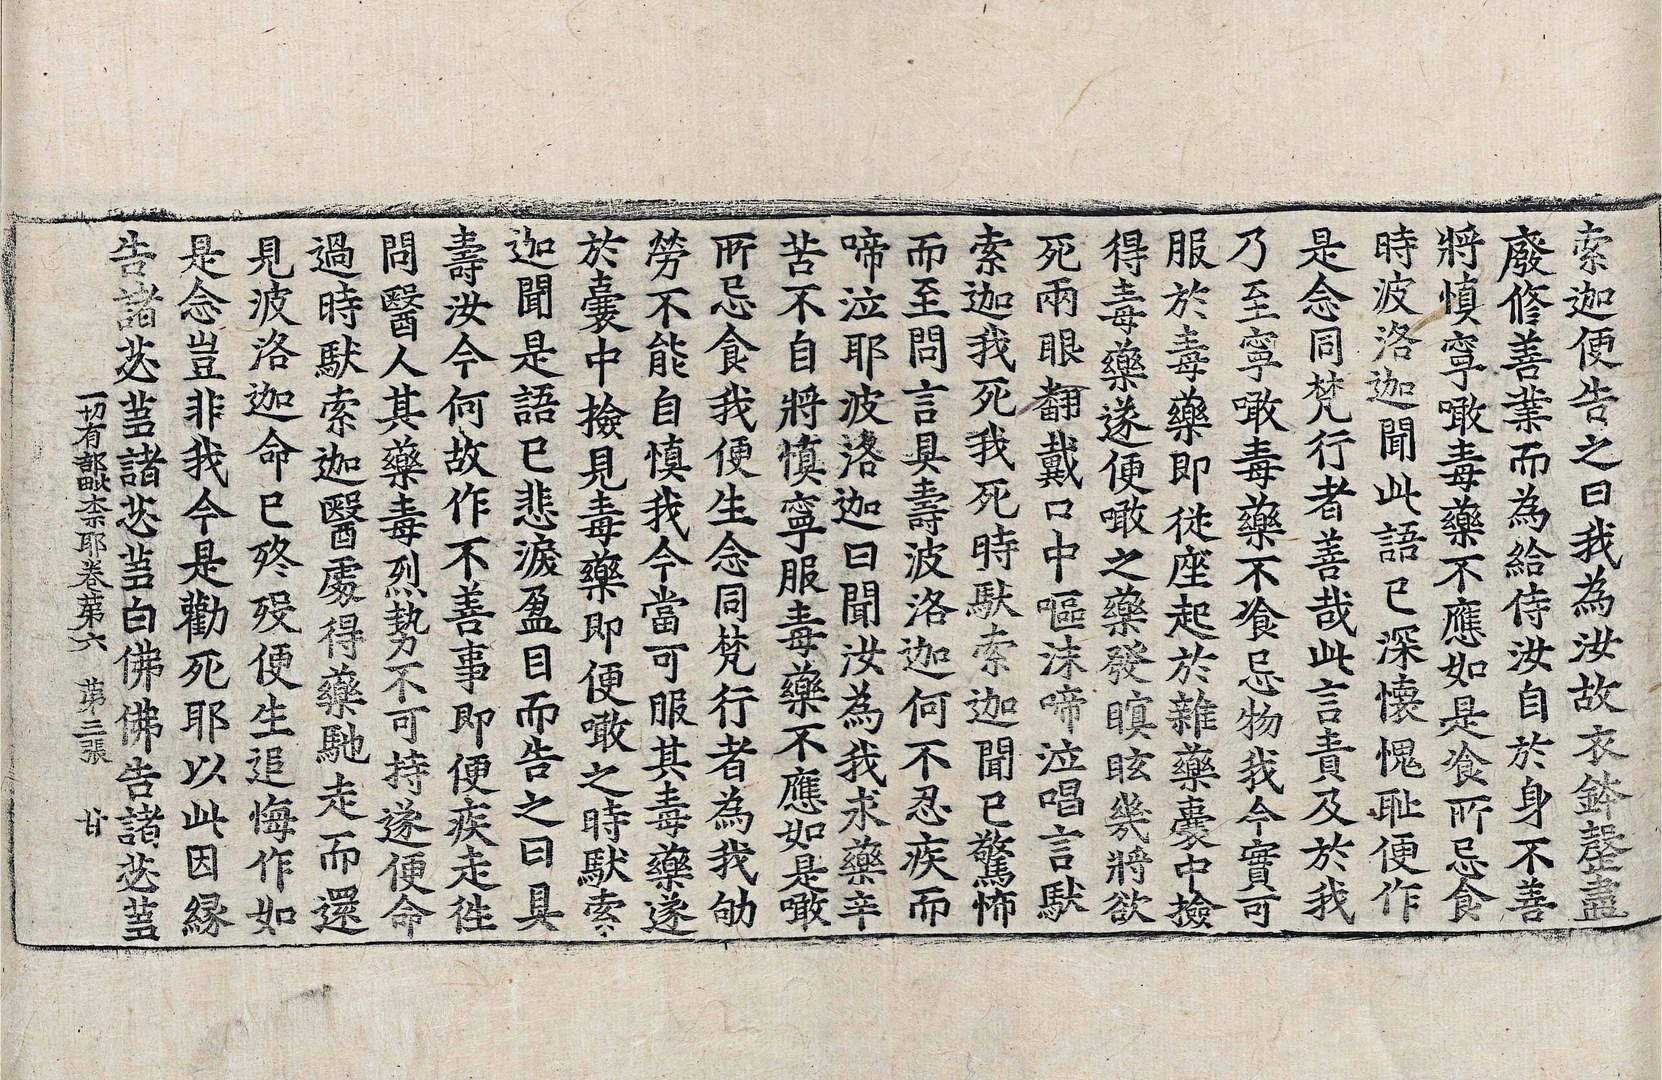 索迦便告之曰我為汝故衣鉢罄盡
廢修善業而為給侍汝自於身不善
將慎寧噉毒藥不應如是飡所忌食
時波洛迦聞此語已深懷愧耻便作
是念同梵行者善哉此言責及於我
乃至寧噉毒藥不飡忌物我今實可
服於毒藥即從座起於雜藥囊中撿
得毒藥遂便噉之藥發瞑眩幾將欲
死兩眼翻戴口中嘔沫啼泣唱言馱
索迦我死我死時馱索迦聞已驚怖
而至問言具壽波洛迦何不忍疾而
啼泣耶波洛迦曰聞汝為我求藥辛
苦不自將慎寧服毒藥不應如是噉
所忌食我便生念同梵行者為我劬
勞不能自慎我今當可服其毒藥遂
於囊中撿見毒藥即便噉之時馱索
迦聞是語已悲淚盈目而告之曰具
壽汝今何故作不善事即便疾走徃
問醫人其藥毒烈勢不可持遂便命
過時馱索迦醫處得藥馳走而還
見波洛迦命已終殁便生追悔作如
是念豈非我今是勸死耶以此因緣
告諸苾蒭諸苾蒭白佛佛告諸苾蒭
一切有部毗柰耶卷第六 第三張 甘